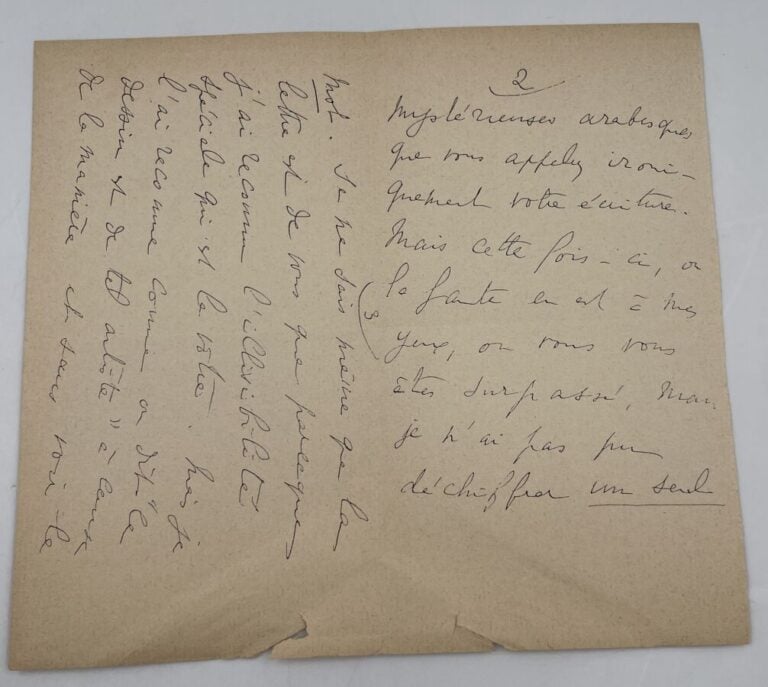 2
mystérieuses arabesques
que vous appelez ironi-
quement votre écriture.
Mais cette fois-ci, ou
la faute en est à mes
yeux, ou vous vous
êtes surpassé, mais
je n'ai pas pu
déchiffrer un seul
3
mot. Je ne sais même que la
lettre est de vous que parceque
j'ai reconnu l'illisibilité
spéciale qui est la vôtre. Mais je
l'ai reconnue comme on dit "le
dessin est de tel artiste" à cause
de la manière et sans voir le